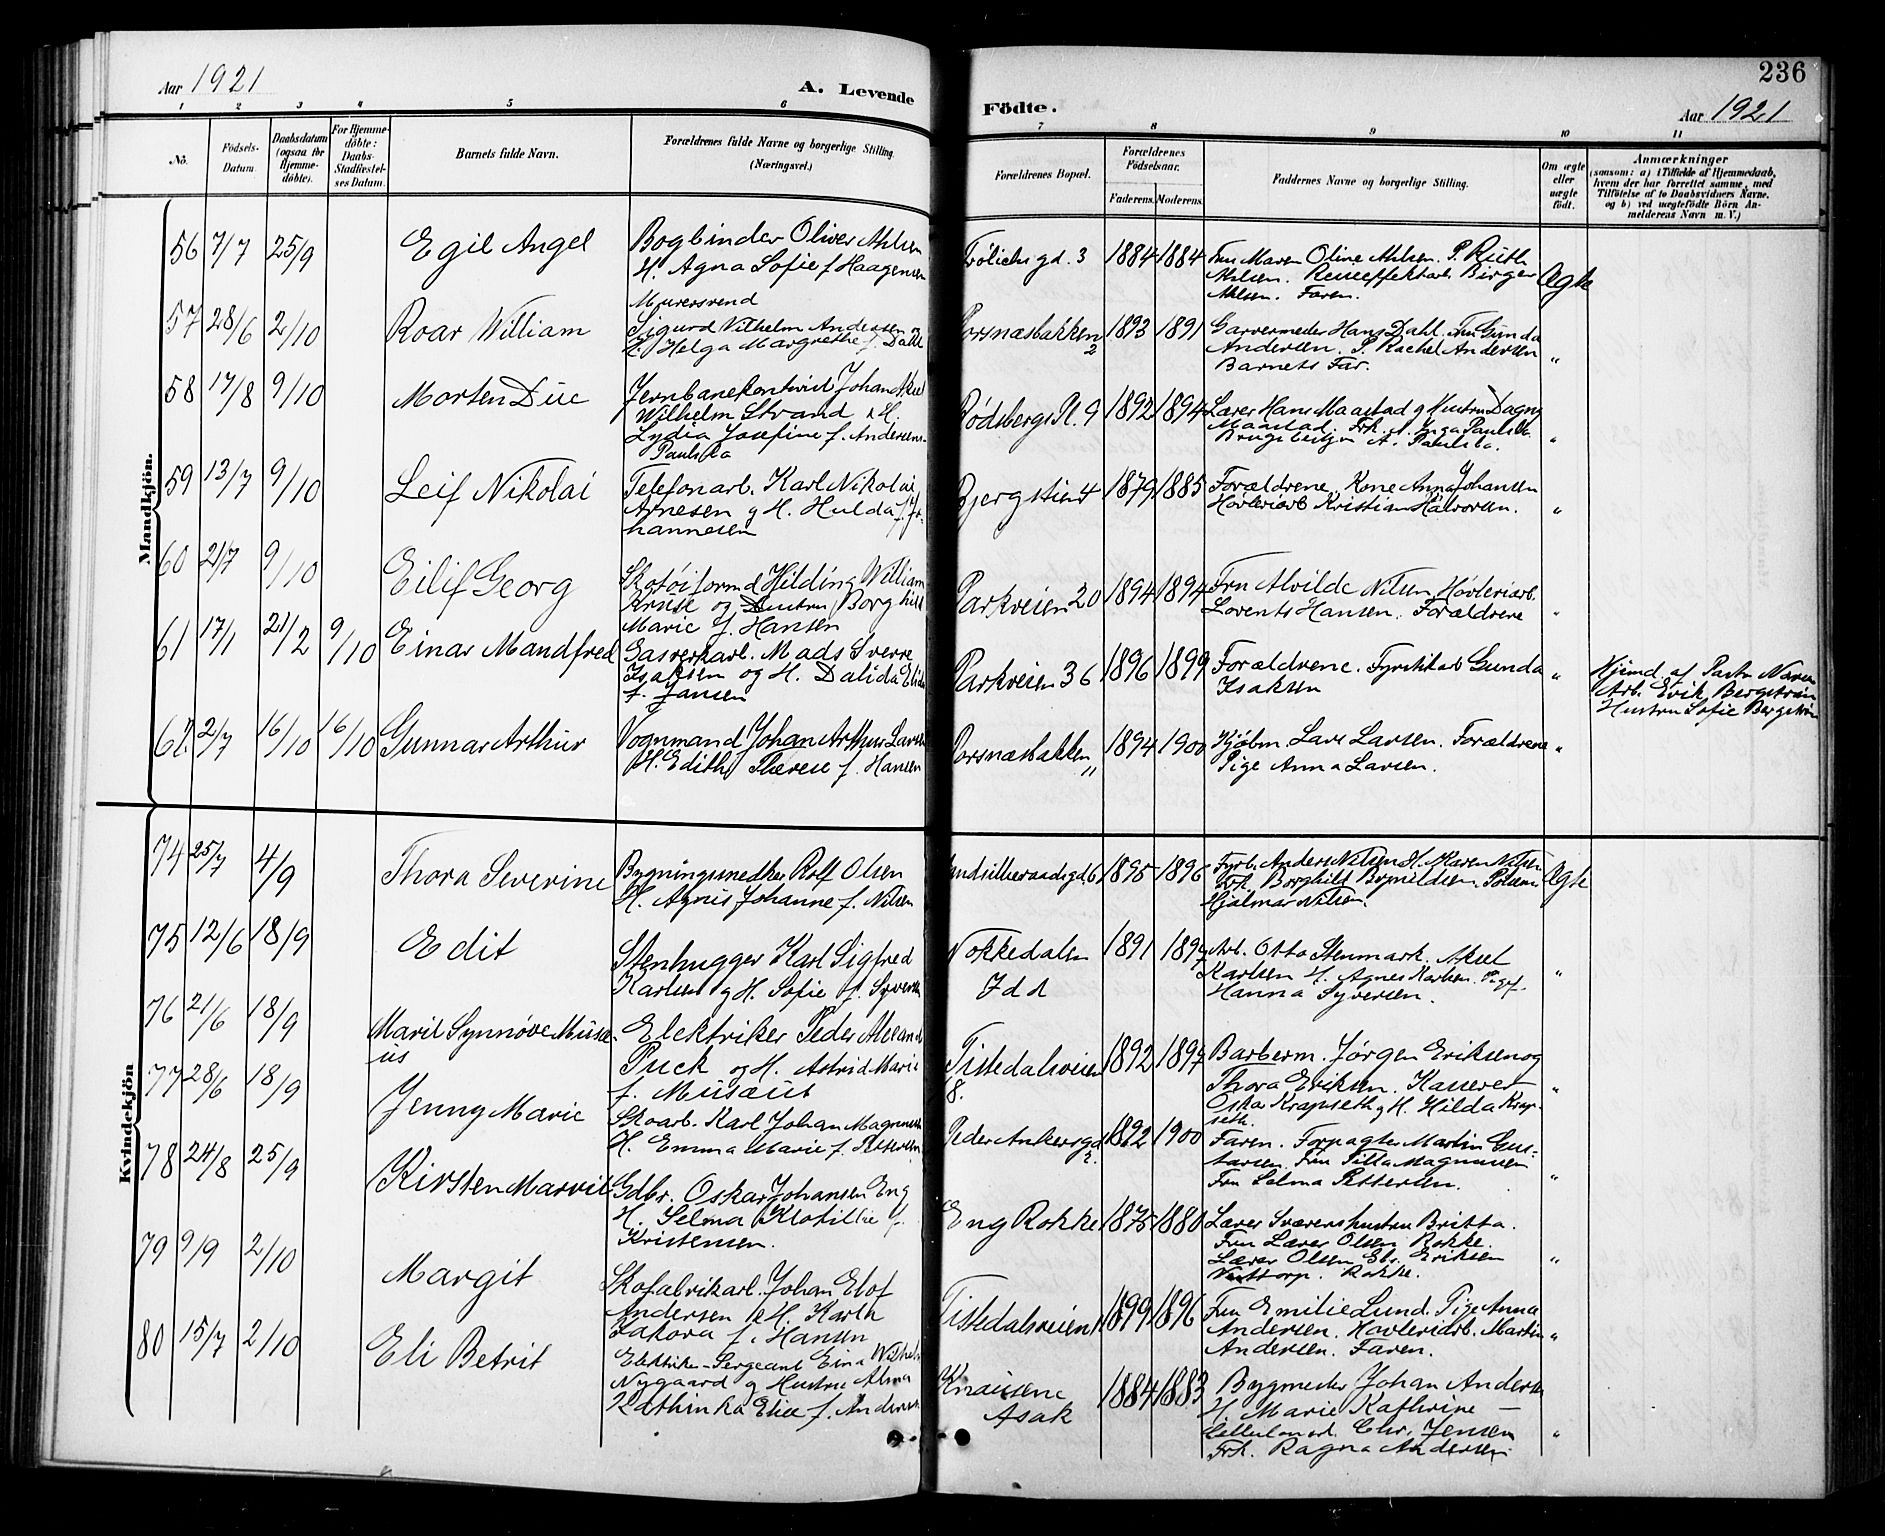 Aar 1921
A. Levende
1 2 3 4 5 6
No.
Fødsels-Datum.
Daabsdatum (ogsaa for Hjemme-døbte).
For Hjemme-døbte: Daabs-Stadfæstel-ses Datum.
Barnets fulde Navn.
Forældrenes fulde Navne og borgerlige Stilling.
(Næringsvei.)
Mandkjön.
56 7/7 25/9 Egil Angel
Bogbinder Oliver Ahlsen
H. Agna Sofie f. Haagensen
57 28/6 2/10 Roar William
Murersvend
Sigurd Vilhelm Andersen
H. Helga Margrethe f. Dahl
58 17/8 9/10 Morten Due
Jernbanekontorist Johan Aksel
Wilhelm Strand & H.
Lydia Josefine f. Andersen-
59 13/7 9/10 Leif Nikolai
Telefonarb. Karl Nikolai
Arnesen og H. Hulda f. Jo-
hannesen
60 21/7 9/10 Eilif Georg
Skotøiformd Hilding William
Kruse og Hustru Borghild
Marie f. Hansen
61 17/1 21/2 9/10 Einar Mandfred
Gasverkarb. Mads Sverre
Isaksen og H. Dalida Elida
f. Jansen
62. 2/7 16/10 16/10 Gunnar Arthur
Vognmand Johan Arthur Larsen
H. Edith Therese f. Hansen
Kvindekjön
74 25/7 4/9 Thora Severine
Bygningssnedker Rolf Olsen
H. Agnes Johanne f. Nilsen
75 12/6 18/9 Edit
Stenhugger Karl Sigfred
Karlsen og H. Sofie f. Syversen
76 21/6 18/9 Maril Synnøve Musæ-
us
Elektriker Peder Alexand
Puck og H. Astrid Marie
f. Musæus
77 28/6 18/9 Jenny Marie
Skoarb. Karl Johan Magnussen
H. Emma Marie f. Pettersen
78 24/8 25/9 Kirsten Marvil
Gdbr. Oskar Johansen Eng
H. Selma Klotilde f.
Kristensen.
79 9/9 2/10 Margit
Skofabrikarb. Johan Elof
Andersen & H. Karla
Jakova f. Hansen
80 15/7 2/10 Eli Betrit
Elektriker-Sergeant Einar Wilhelm
Nygaard og Hustru Alma
Kathinka Elise f. Andersen
236
Födte.
Aar 1921
7 8 9 10 11
Forældrenes Bopæl.
Forældrenes Fødselsaar.
Faderens. Moderens.
Faddernes Navne og borgerlige Stilling.
Om ægte eller uægte født.
Anmærkninger
(saasom: a) i Tilfælde af Hjemmedaab,
hvem der har forrettet samme, med
Tilføielse af to Daabsvidners Navne,
og b) ved uægtefødte Børn An-
melderens Navn m. V.)
Frölichs gd. 3 1884 1884
Fru Maren Oline Ahlsen. P. Ruth
Ahlsen. Birger
Ahlsen. Faren.
Ægte
Porsnæsbakken 2 1893 1891
Garvermester Hans Dahl. Fru Gunda
Andersen. P. Rachel Andersen
Barnets Far.
"
Rødsbergs Pl. 9 1892 1894
Lærer Hans Maastad og Hustru Dagny
Maastad. Frk. Inga
"
Bjergstien 4 1879 1885
Forældrene. Kone Anna Johansen
Høvleriarb Kristian Halvorsen.
"
Parkveien 20 1894 1894
Fru Alvilde Nilsen Høvleriarb.
Lorents Hansen. Forældrene
"
Parkveien 36 1896 1899
Forældrene. Fyrstikarb Gunda
Isaksen
"
Hjemd. af Pastor
Arb. Erik Bergstrøm
Hustru Sofie Bergstrøm
Porsnæsbakken 11 1894 1900
Kjøbm. Lars Larsen. Forældrene
Pige Anna Larsen.
"
6 1895 1896
Fyrb. Anders Nilsen H. Maren Nilsen
Frk. Borghild
Hjalmar Nilsen.
Ægte
Nokkedalen
Idd
1891
Arb. Otto Stenmark. Aksel
Karlsen H. Agnes Karlsen. Pige
Hanna Syversen.
"
Tistedalsveien
8.
1892 1897
Barberm. Jørgen Eriksen og
Thora Eriksen. Kasserer
Oskar Krapseth og H. Hilda Krap-
seth.
"
Peder Ankersgd 2. 1892 1900
Faren. Forpagter Martin Gus-
tavsen. Fru Tilla Magnussen
Fru Selma Pettersen.
"
Eng Rokke 1875 1880
Lærer Sværens hustru Britta.
Fru Lærer Olsen Rokke.
Lærer Olsen Gbr. Eriksen
Rokke.
"
Tistedalsveien 1 1899 1896
Fru Emilie Lund. Pige Anna
Andersen. Høvleriarb. Martin
Andersen. Faren.
"
Knausene
Asak
1884 1883
Bygmester Johan Andersen
H. Marie Kathrine –
Chr. Jensen
Frk. Ragna Andersen
"